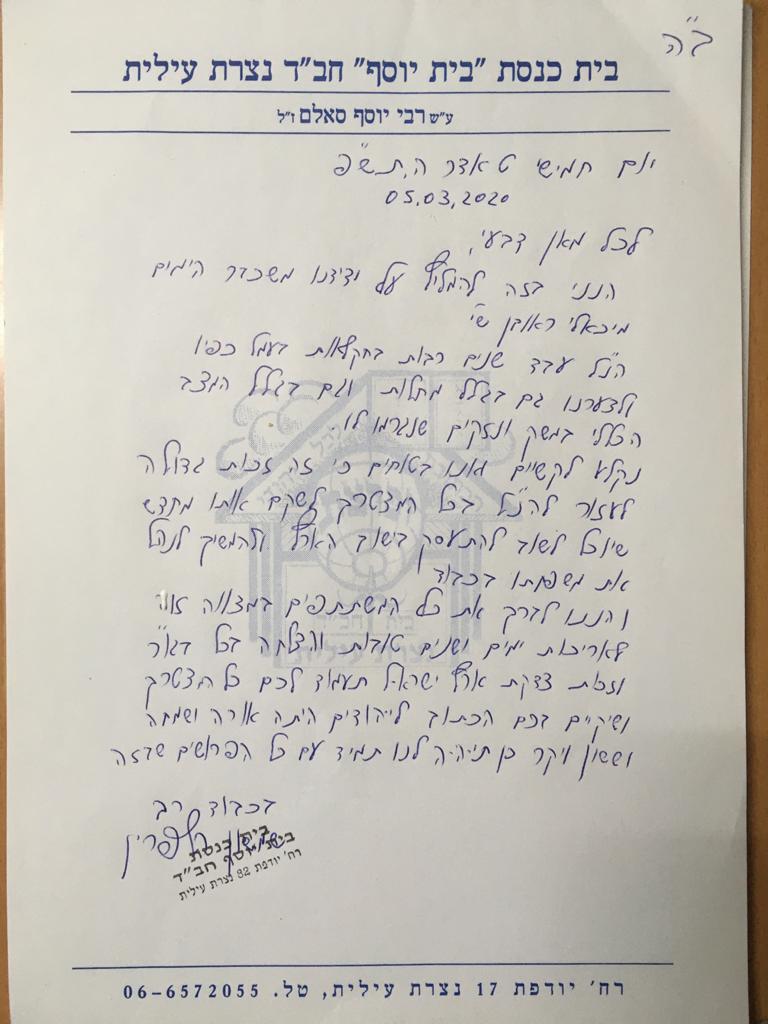 ב"ה
בית כנסת "בית יוסף" חב"ד נצרת עילית
ע"ש רבי יוסף סאלם ז"ל
יום חמישי ט אדר ה,ת.ש"פ
05.03.2020
לכל מאן דבעי,
הנני בזה להמליץ על ידידנו משכבר הימים
מיכאלי ראובן שי'
הנ"ל עבד שנים רבות בחקלאות בעמל כפיו
ולצערנו גם בגלל מחלות וגם בגלל המצב
הכללי במשק ונזקים שנגרמו לו.
נקלע לקשיים ואנו בטוחים כי זה זכות גדולה
לעזור להנ"ל בכל המצטרך לשקם אותו מחדש
שיוכל לשוב להתעסק בישוב הארץ ולהמשיך לנהל
את משפחתו בכבוד
והננו לברך את כל המשתתפים במצווה זאת
לאריכות ימים ושנים טובות והצלחה בכל
וזכות צדקת ארץ ישראל תעמוד לכם כל המצטרך
ושיקויים בכם הכתוב ליהודים היתה אורה ושמחה
וששון ויקר כן תיהיה לנו תמיד עם כל הפרושים שבזה
בכבוד רב
שמשון
בית כנסת
בית יוסף חב"ד
רח' יודפת 82 נצרת עילית
בית חב"ד
נצרת עילית
רח' יודפת 17 נצרת עילית, טל. 06-6572055